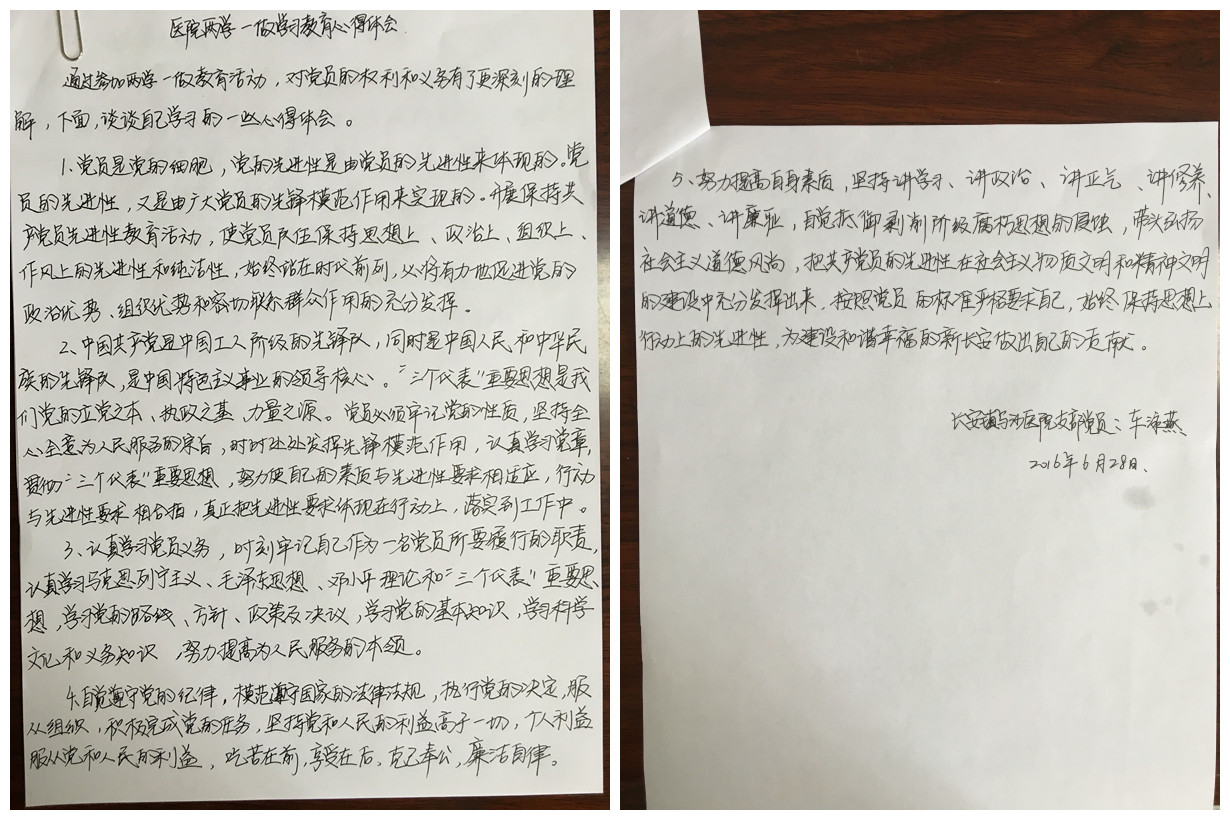 医院两学一做学习教育心得体会
通过参加两学一做教育活动，对党员的权利和义务有了更深刻的理
解，下面，谈谈自己学习的一些心得体会。
1.党员是党的细胞，党的先进性是由党员的先进性来体现的。党
员的先进性，又是由广大党员的先锋模范作用来实现的。开展保持共
产党员先进性教育活动，使党员队伍保持思想上、政治上、组织上、
作风上的先进性和纯洁性，始终站在时代前列，必将有力地促进党的
政治优势、组织优势和密切联系群众作用的充分发挥。
2、中国共产党是中国工人阶级的先锋队，同时是中国人民和中华民
族的先锋队，是中国特色主义事业的领导核心。“三个代表”重要思想是我
们党的立党之本、执政之基、力量之源。党员必须牢记党的性质，坚持全
心全意为人民服务的宗旨，时时处处发挥先锋模范作用，认真学习党章，
贯彻“三个代表”重要思想，努力使自己的素质与先进性要求相适应，行动
与先进性要求相合拍，真正把先进性要求体现在行动上，落实到工作中。
3、认真学习党员义务，时刻牢记自己作为一名党员所要履行的职责，
认真学习马克思列宁主义、毛泽东思想、邓小平理论和“三个代表”重要思
想，学习党的路线、方针、政策及决议，学习党的基本知识，学习科学
文化和义务知识，努力提高为人民服务的本领。
4.自觉遵守党的纪律，模范遵守国家的法律法规，执行党的决定，服
从组织，积极完成党的任务，坚持党和人民的利益高于一切，个人利益
服从党和人民的利益，吃苦在前，享受在后，克己奉公，廉洁自律。
5、努力提高自身素质，坚持讲学习、讲政治、讲正气、讲修养、
讲道德、讲廉耻，自觉抵御剥削阶级腐朽思想的侵蚀，带头弘扬
社会主义道德风尚，把共产党员的先进性在社会主义物质文明和精神文明
的建设中充分发挥出来，按照党员的标准严格要求自己，始终保持思想上
行动上的先进性，为建设和谐幸福的新长安做出自己的贡献。
长安镇乌沙医院支部党员：车燕
2016年6月28日、